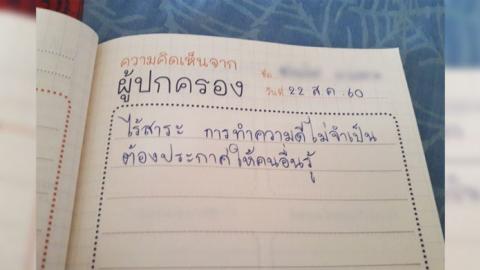 ความคิดเห็นจาก
ผู้ปกครอง
ชื่อ
วันที่ 22 ส.ค. 60
ไร้สาระ การทำความดีไม่จำเป็น
ต้องประกาศให้คนอื่นรู้